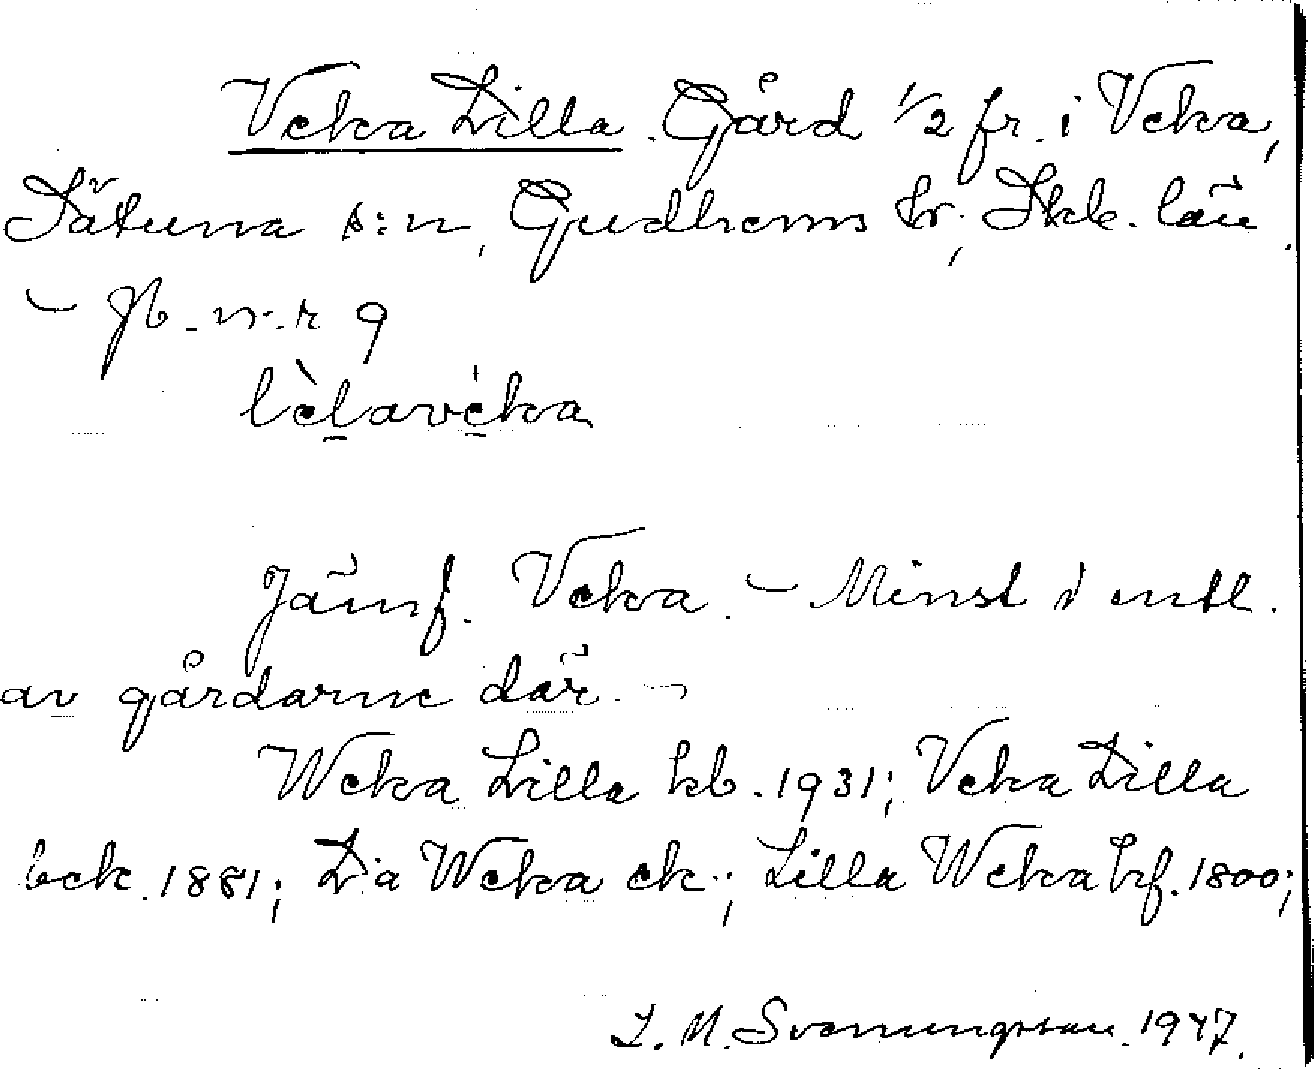 Veka Lilla. Gård 1/2 fr. i Veka,
Sätuna s:n, Gudhems hr, Skb. län.
– Jb. n:r 9
lèlavéka
Jämf. Veka. – Minst i mtl.
av gårdarne där. –
Weka Lilla kb. 1931; Veka Lilla
bek. 1881; L:a Weka ek.; Lilla Weka hf. 1800;
L. M. Svenungsson. 1947.